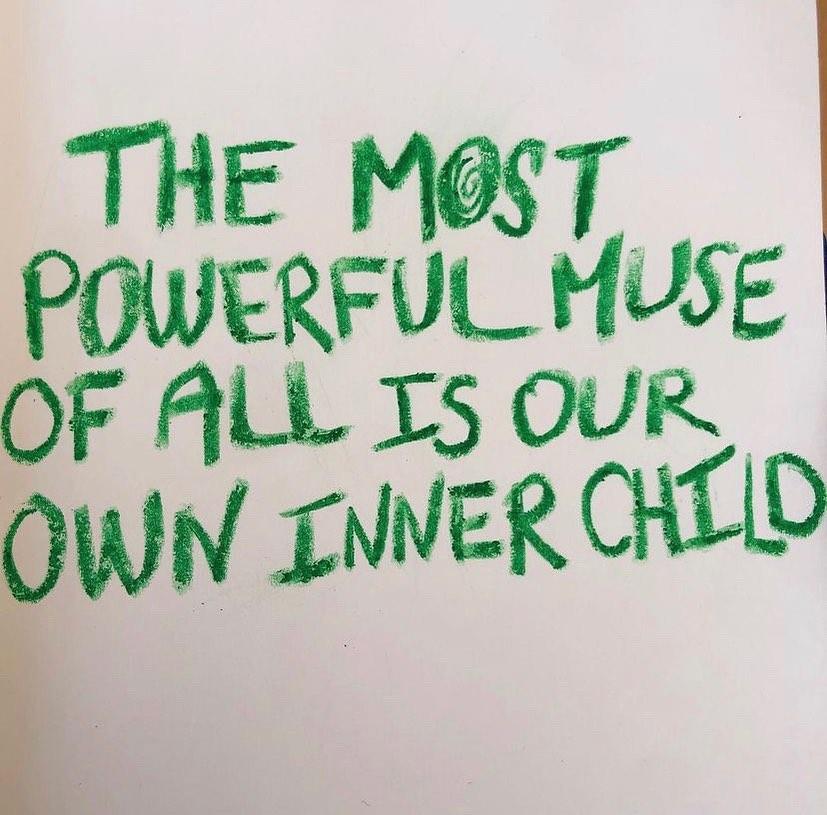 THE MOST
POWERFUL MUSE
OF ALL IS OUR
OWN INNER CHILD